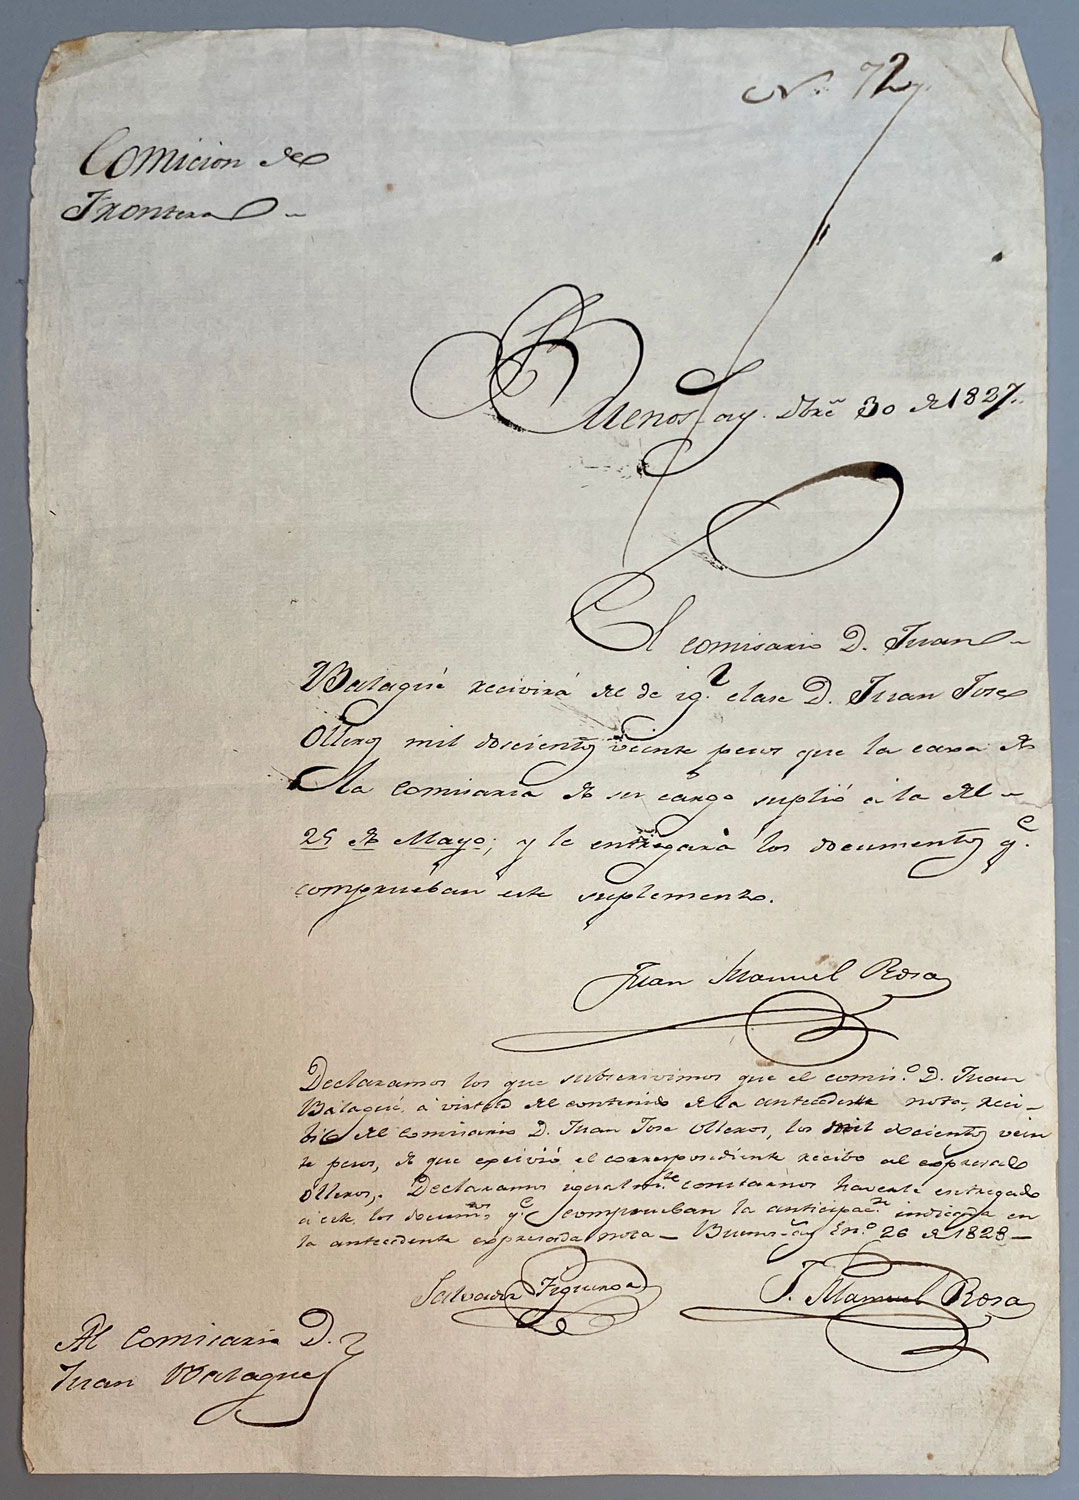 N. 72
Comicion de
Frontera
Buenos ay. Dbre 30 de 1827.
El comisario D. Juan
Balagué recivirá del de ig.l clase D. Juan Jose
Olleros mil doscientos veinte pesos que la caxa de
la comisaria de su cargo suplió á la del
25 de Mayo; y le entregará los documentos q.e
comprueban este suplemento.
Juan Manuel Rosas
Declaramos los que subscrivimos que el comis.o D. Juan
Balagué, á virtud del contenido de la antecedente nota, reci-
bió del comisario D. Juan Jose Olleros, los mil docientos vein
te pesos, de que expivió el correspondiente recibo al expresado
Olleros,. Declaramos igualm.te constarnos haverle entregado
á este los docum.tos q.e comprueban la anticipac.n indicada en
la antecedente expresada nota — Buenos ay En.o 26 de 1828 —
Salvador Figueroa
J. Manuel Rosas
Al comisario D.
Juan Balague